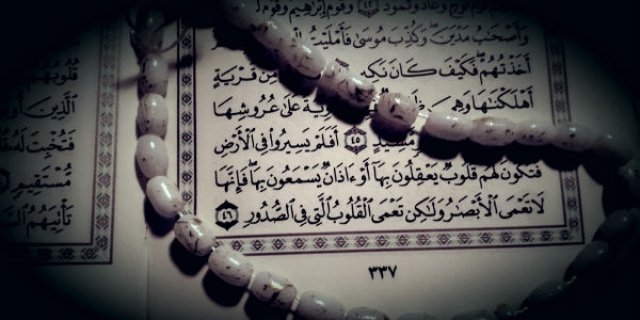 نُوحٍ وَعَادٌ وَثَمُودُ ٤٢ وَقَوْمُ إِبْرَٰهِيمَ وَقَوْمُ
وَأَصْحَٰبُ مَدْيَنَ ۖ وَكُذِّبَ مُوسَىٰ فَأَمْلَيْتُ
أَخَذْتُهُمْ ۖ فَكَيْفَ كَانَ مِّن قَرْيَةٍ
أَهْلَكْنَٰهَا وَهِىَ عَلَىٰ عُرُوشِهَا
مَّشِيدٍ ٤٥ أَفَلَمْ يَسِيرُوا۟ فِى ٱلْأَرْضِ
فَتَكُونَ لَهُمْ قُلُوبٌ يَعْقِلُونَ بِهَآ أَوْ ءَاذَانٌ يَسْمَعُونَ بِهَا ۖ فَإِنَّهَا
لَا تَعْمَى ٱلْأَبْصَٰرُ وَلَٰكِن تَعْمَى ٱلْقُلُوبُ ٱلَّتِى فِى ٱلصُّدُورِ ٤٦
٣٣٧
قُلُوبُهُمْ
ٱلَّذِينَ
فَتُخْبِتَ لَهُۥ
مُّسْتَقِيمٍ
تَأْتِيَهُمُ